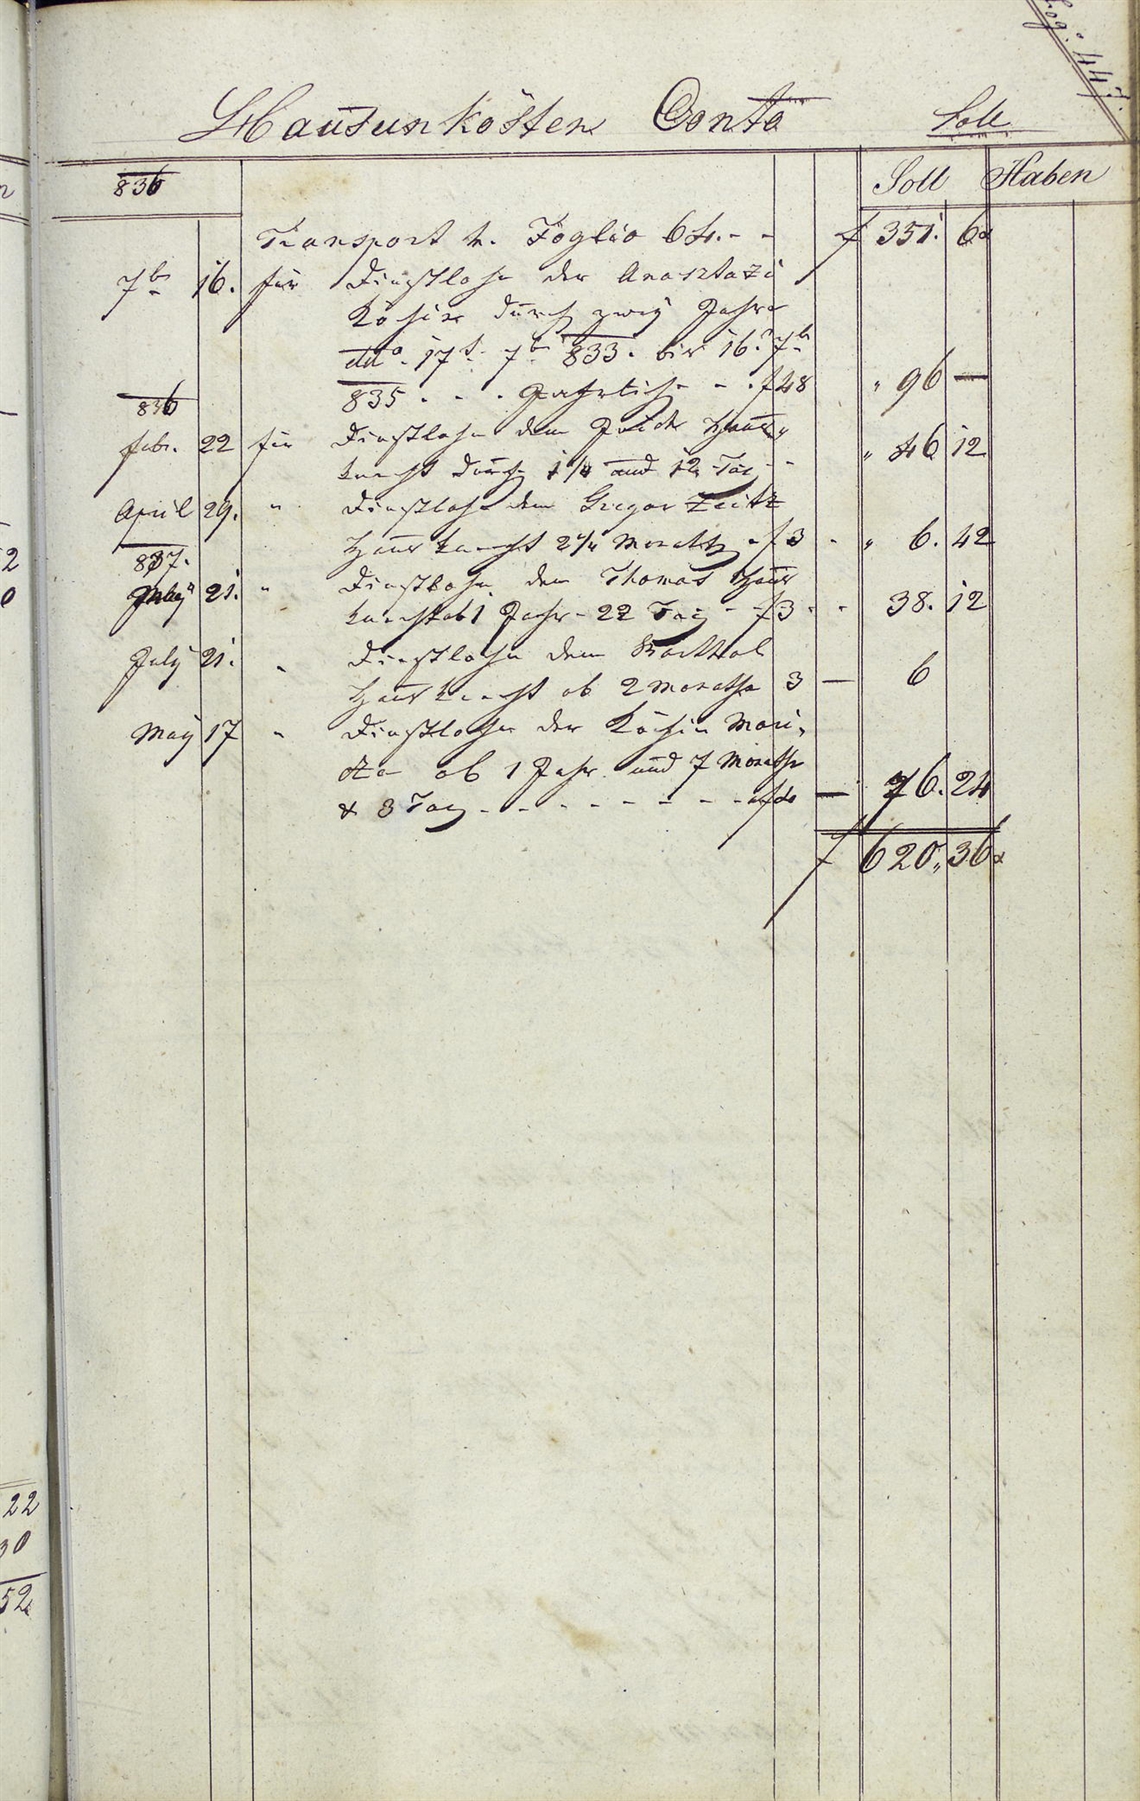 Fog: 447.
Hausunkösten Conto Soll
836 Soll Haben
Transport v. Foglio 64. - - f 351. 6x
7br 16. für Dienstlohn der Anastazi
Köchin durch zwey Jahre
ddo. 17t. 7br 833. bis 16t. 7br
835. - - Jährlich - - f 48 " 96 —
836
Febr. 22 für Dienstlohn dem Haus
knecht durch 1 1/4 und 12 Tag - - " 46 12
April 29. " Dienstlohn dem Gregor Zeitz
Hausknecht 2 1/4 Monath - f 3 - " 6. 42
837.
21. " Dienstlohn dem Thomas Haus
knecht ab 1 Jahr - 22 Tag - f 3 - - 38. 12
July 21. " Dienstlohn dem
Hausknecht ab 2 Monathe 3 — 6
May 17 " Dienstlohn der Köchin Mari,
ab 1 Jahr und 7 Monathe
& 3 Tag - - - - - - - - — 76. 24
f 620,, 36x
22
30
52